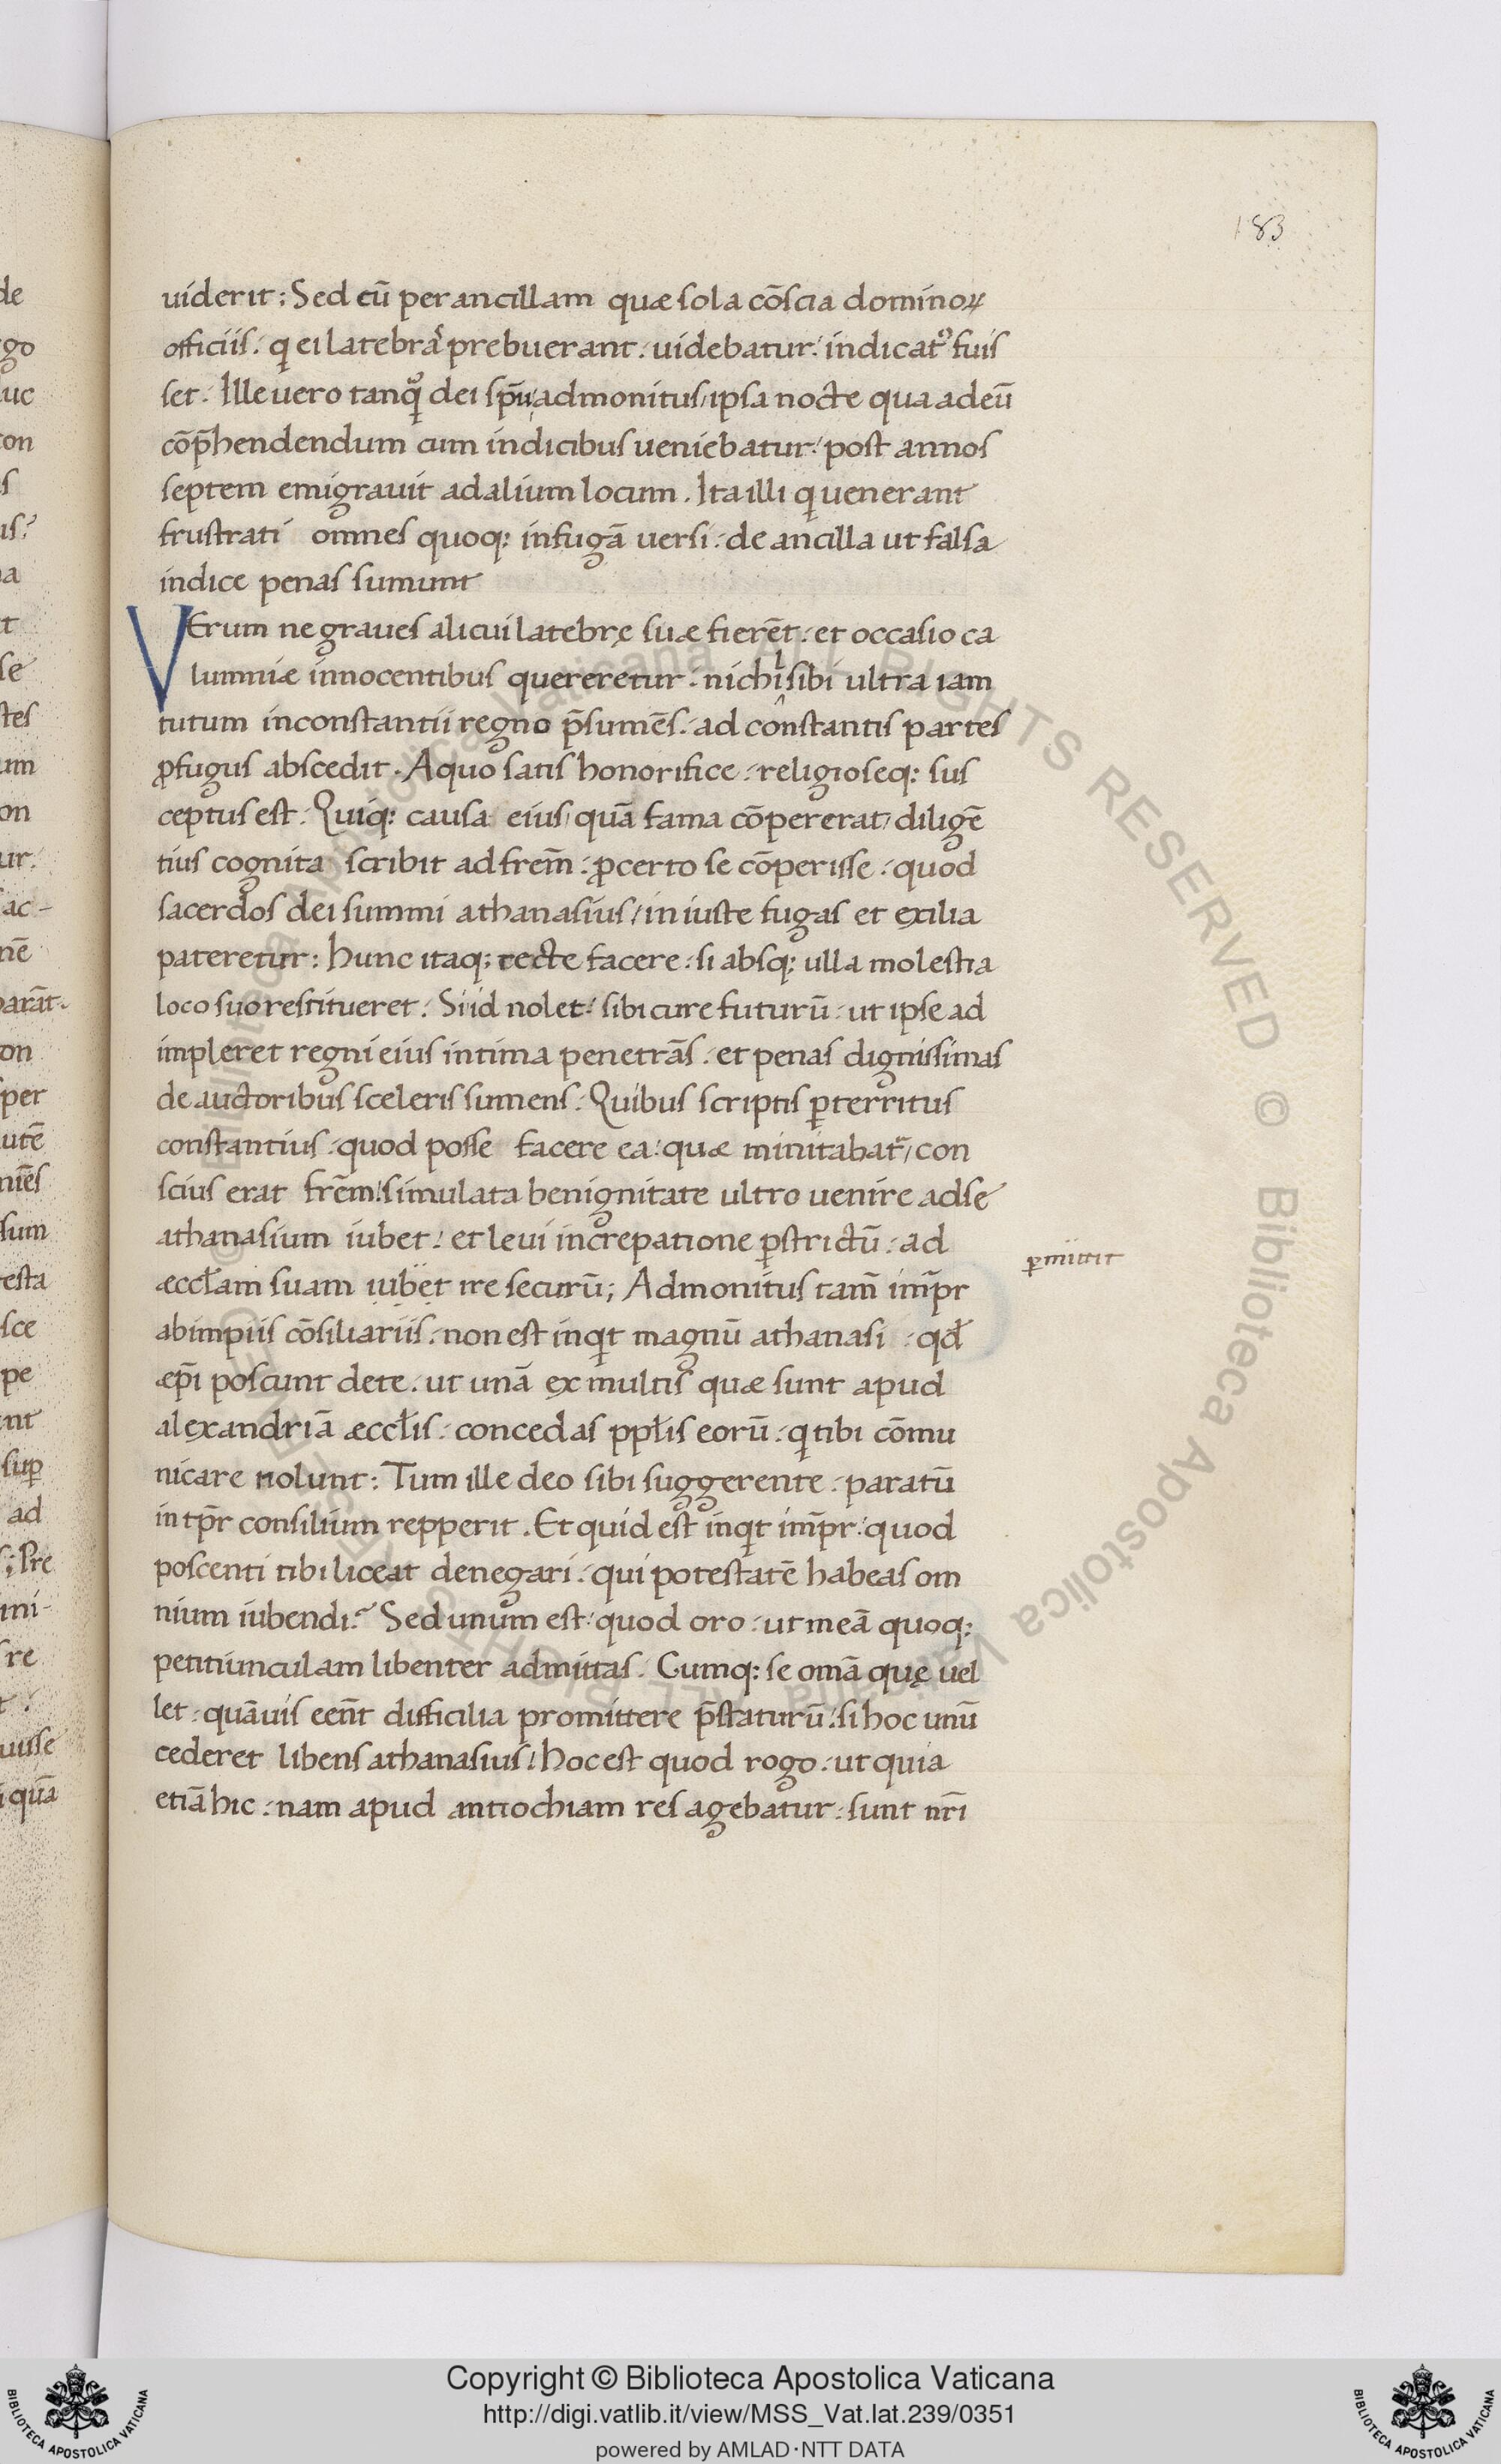 183
uiderit; Sed cū per ancillam quæ sola cōscia dominoꝝ
officiis. q ei latebrās prebuerant. uidebatur. indicat᷒ fuis
set. Ille uero tanq̄ dei spū admonitus, ipsa nocte qua ad eū
cōp̄hendendum cum indicibus ueniebatur. post annos
septem emigrauit ad alium locum. Ita illi q uenerant
frustrati omnes quoq: in fugā uersi. de ancilla ut falsa
indice penas sumunt
VErum ne graues alicui latebrę suæ fierēt. et occasio ca
lumniæ innocentibus quereretur. nichil sibi ultra iam
tutum in constantii regno p̄sumēs. ad constantis partes
ꝓfugus abscedit. A quo satis honorifice. religioseq: sus
ceptus est. Quiq: causa eius, quā fama cōpererat, diligē
tius cognita scribit ad frem̄. ꝓ certo se cōperisse. quod
sacerdos dei summi athanasius, iniuste fugas et exilia
pateretur: hunc itaq; recte facere. si absq: ulla molestia
loco suo restitueret. Si id nolet. sibi cure futurū. ut ipse ad
impleret regni eius intima penetrās. et penas dignissimas
de auctoribus sceleris sumens. Quibus scriptis ꝑterritus
constantius. quod posse facere ea. quæ minitabat᷑, con
scius erat frēm. simulata benignitate ultro uenire ad se
athanasium iubet. et leui increpatione ꝑstrictū. ad
æccłam suam iubet ire securū; Admonitus tam̄ imp̄r
ꝑmittit
ab impiis cōsiliariis. non est inqt magnū athanasi. qđ
æp̄i poscunt de te. ut unā ex multis quæ sunt apud
alexandriā æccłis. concedas ppłis eorū. q tibi cōmu
nicare nolunt: Tum ille deo sibi suggerente. paratū
in tp̄r consilium repperit. Et quid est inqt imp̄r. quod
poscenti tibi liceat denegari. qui potestatē habeas om
nium iubendi? Sed unum est. quod oro. ut meā quoq:
petitiunculam libenter admittas. Cumq: se omā quę uel
let. quāuis eēnt difficilia promittere p̄staturū. si hoc unū
cederet libens athanasius. hoc est quod rogo. ut quia
etiā hic. nam apud antiochiam res agebatur. sunt nr̄i
Copyright © Biblioteca Apostolica Vaticana
http://digi.vatlib.it/view/MSS_Vat.lat.239/0351
powered by AMLAD·NTT DATA